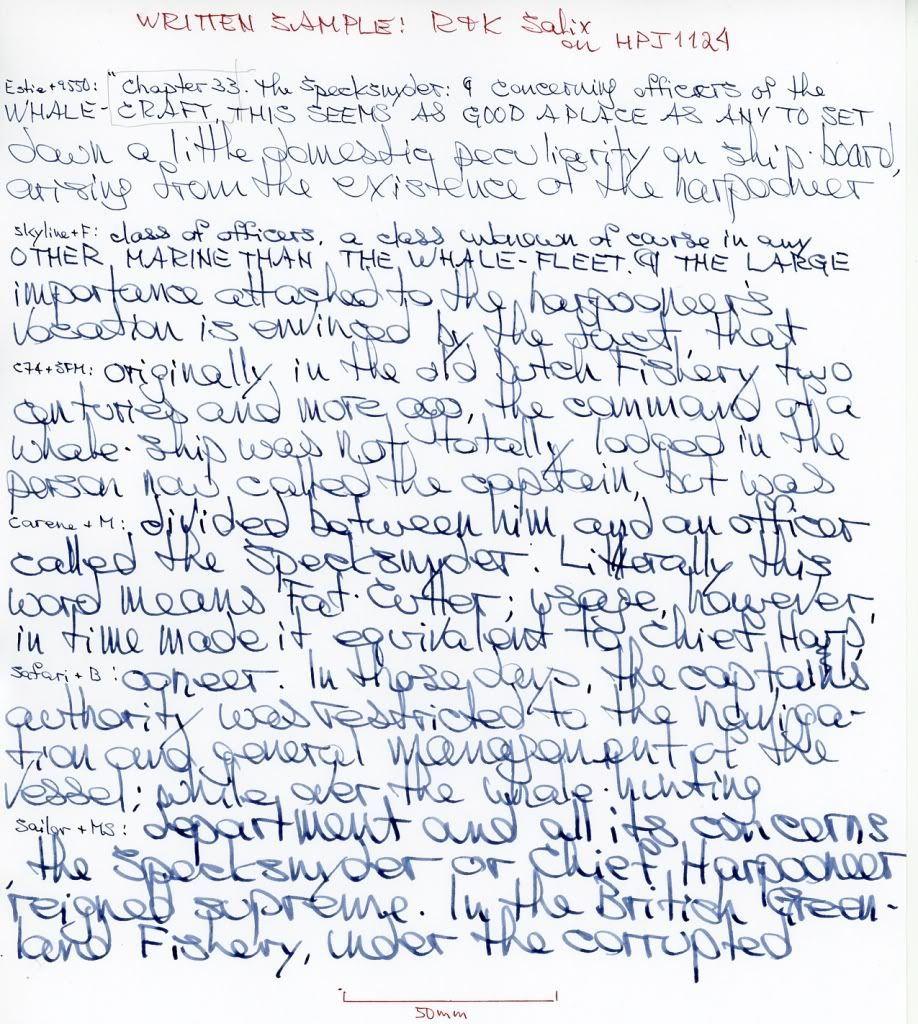 WRITTEN SAMPLE: R&K Salix
on HPJ1124
Estie+9550: "Chapter 33. The Specksnyder: ¶ concerning officers of the
WHALE-CRAFT, THIS SEEMS AS GOOD A PLACE AS ANY TO SET
down a little domestic peculiarity on ship-board,
arising from the existence of the harpooneer
Skyline+F: class of officers, a class unknown of course in any
OTHER MARINE THAN THE WHALE-FLEET. ¶ THE LARGE
importance attached to the harpooneer's
vocation is envinced by the fact, that
C74+SFM: originally in the old Dutch Fishery two
centuries and more ago, the command of a
whale-ship was not totally lodged in the
person now called the captain, but was
Carene+M: divided between him and an officer
called the Specksnyder. Litterally this
word means Fat-Cutter; usage, however,
in time made it equivalent to Chief Harp,
Safari+B: ooneer. In those days, the captain's
authority was restricted to the naviga-
tion and general management of the
vessel; while over the whale-hunting
Sailor+MS: department and all its concerns
the Specksnyder or Chief Harpooneer
reigned supreme. In the British Green-
land Fishery, under the corrupted
50mm